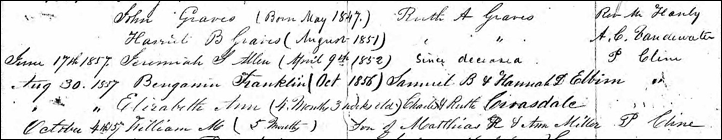 John Graves (Born May 1847.) Ruth A Graves Rev. Mr Hanly
Harriet B Graves (August 1851) " " A. C. Vandewater
June 17th 1857. Jeremiah J Allen (April 9th 1852) Since deceased P Cline
Aug 30. 1857 Bengamin Franklin (Oct 1856) Samuel B & Hannah D "
" " Elizabeth Ann (4 months 3 weeks old) Charles & Ruth Croasdale
October 4 1857 William M (5 months) Son of Matthias R & Ann Miller P Cline